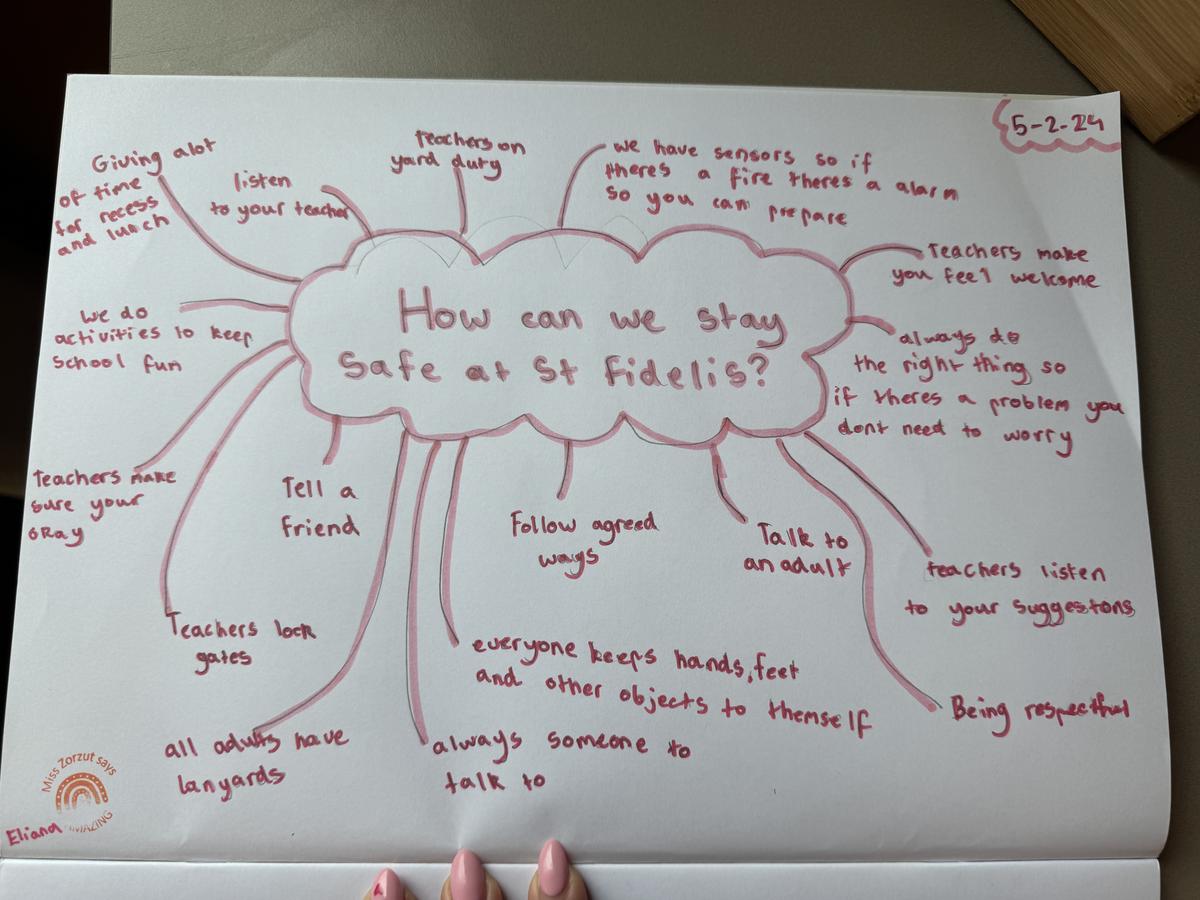 5-2-24
How can we stay
safe at St Fidelis?
Giving alot
of time
for recess
and lunch
listen
to your teacher
teachers on
yard duty
we have sensors so if
theres a fire theres a alarm
so you can prepare
Teachers make
you feel welcome
always do
the right thing so
if theres a problem you
dont need to worry
teachers listen
to your suggestons
Being respectful
Talk to
an adult
Follow agreed
ways
everyone keeps hands, feet
and other objects to themself
always someone to
talk to
all adults have
lanyards
Tell a
friend
Teachers lock
gates
Teachers make
sure your
okay
we do
activities to keep
school fun
Miss Zorzut says
AMAZING
Eliana